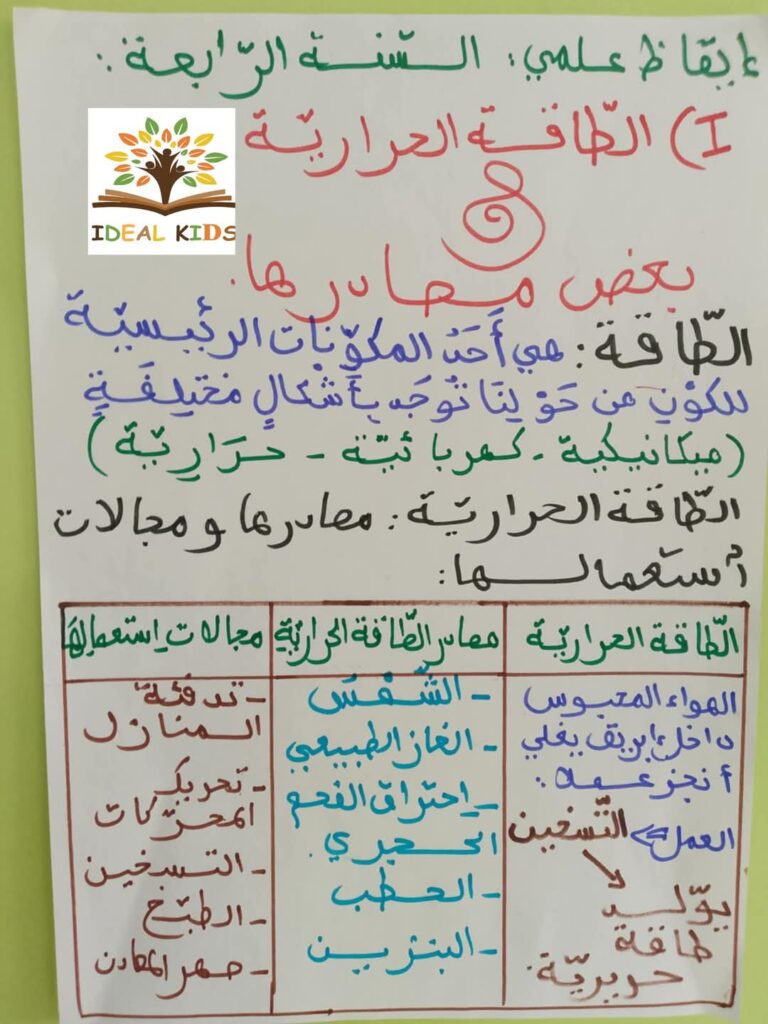 إيقاظ علمي: السّنة الرّابعة:
I) الطّاقة الحراريّة
IDEAL KIDS
و
بعض مصادرها.
الطّاقة: هي أَحَدُ المكوّنات الرئيسيّة
للكوْنِ من حَوْلِنَا تُوجَد بِأَشْكالٍ مختلِفَةٍ
(ميكانيكية - كهربائيّة - حرَارِيّة)
الطّاقة الحراريّة: مصادرها ومجالات
اُستعمالها:
الطّاقة الحراريّة
مصادر الطّاقة الحراريّة
مجالات اِستعمالِهَا
الهواء المحبوس
داخل إبريق يغلي
أنجز عمله:
العمل => التّسخين
يولّد
طاقة
حريريّة.
- الشّمْسُ
- الغاز الطبيعي
- اِحتراق الفحم
الحجري.
- الحطب
- البنزين
- تدفئة
المنازل
- تحريك
المحرّكات
- التسخين
- الطبخ
- صهر المعادن